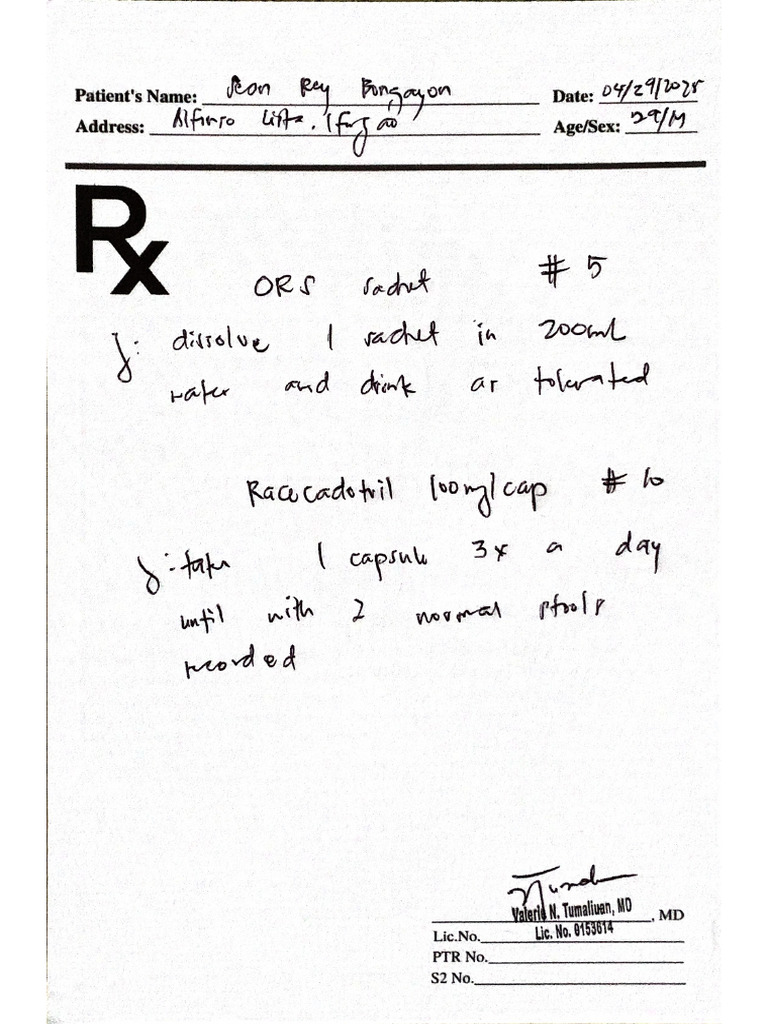 Patient's Name: Jeon Rey Bongayon Date: 04/29/2025
Address: Alfonso Lista, Ifugao Age/Sex: 29/M
Rx
ORS sachet # 5
S: dissolve 1 sachet in 200mL
water and drink as tolerated
Racecadotril 100mg/cap # 10
S: take 1 capsule 3x a day
until with 2 normal stools
recorded
Valerie N. Tumaliuan, MD, MD
Lic.No. Lic. No. 0153614
PTR No.
S2 No.